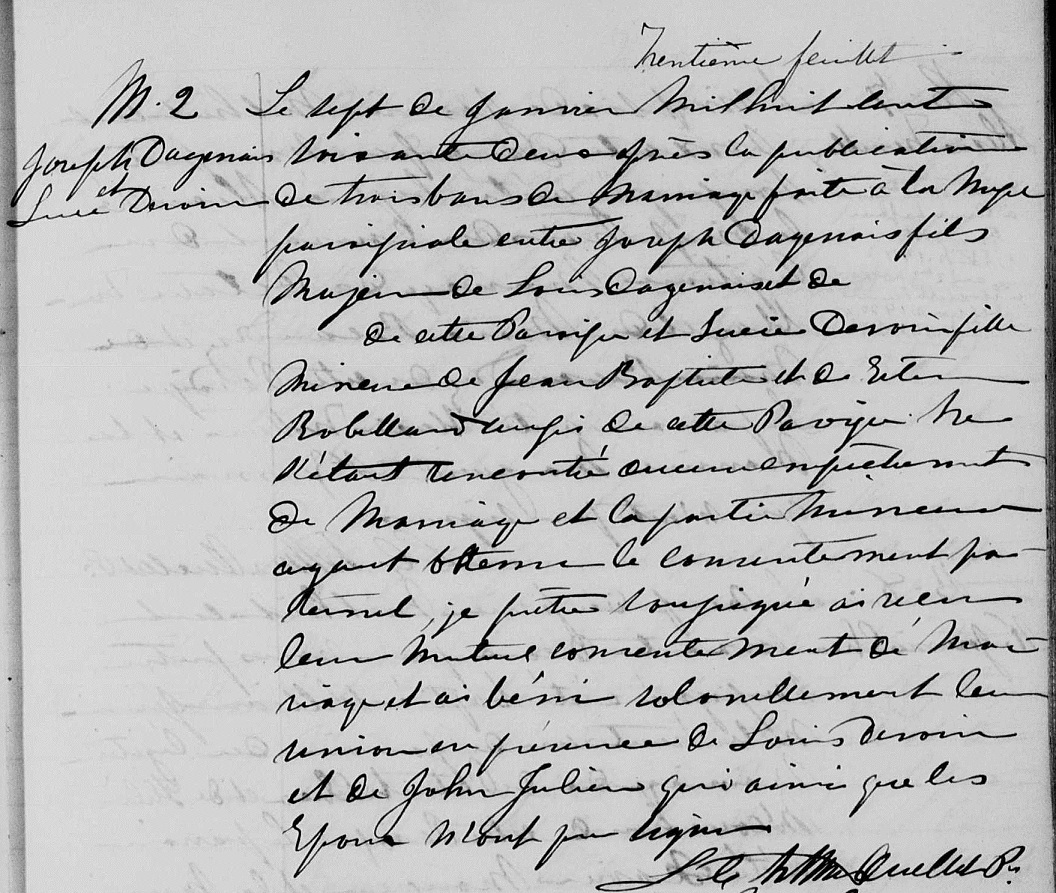 Trentième feuillet
M. 2
Joseph Dagenais
et
Lucie Derouin
Le sept de Janvier Mil huit cent
soixante deux après la publication
de trois bans de Mariage faite à la Messe
paroissiale entre Joseph Dagenais fils
Majeur de Louis Dagenais et de
de cette Paroisse et Lucie Derouin fille
Mineure de Jean Baptiste et de
Robillard aussi de cette Paroisse Ne
s'étant rencontré aucun empêchement
de Mariage et la partie Mineure
ayant obtenu le consentement pa
ternel, je prêtre soussigné ai reçu
leur Mutuel consentement de Ma
riage et ai béni solonellement leur
union en présence de Louis Derouin
et de John Julien qui ainsi que les
Epoux N'ont pu signer
Ouellet Ptr.